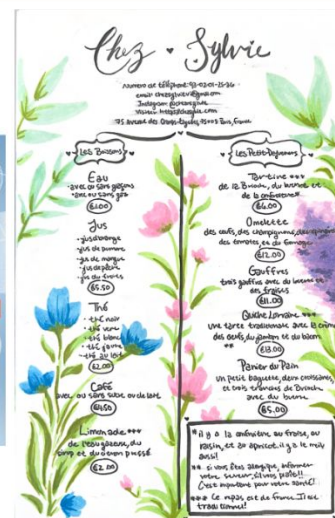 Chez Sylvie
numero de téléphone: 93-0201-25-36
75 Avenue des Champs-Elysées, 75008 Paris, France
Les Boissons
Eau
avec ou sans glaçons
avec ou sans gaz
€1.00
Jus
jus d'orange
jus de pomme
jus de mangue
€5.50
Thé
thé noir
thé vert
thé blanc
thé jaune
thé au lait
€2.00
Café
avec ou sans sucre ou de lait
€4.50
Limonade ***
de l'eau gazeuse, du
sirop et du citron pressé
€2.00
Les Petit-Dejeuners
Tartine ***
de la Brioche, du beurre et
de la confiture *
€6.00
Omelette
des oeufs, des champignons, des
des tomates et du fromage
€12.00
Gauffres
trois gauffres avec du beurre et
des fraises
€11.00
Quiche Lorraine ***
une tarte traditionale avec la crème
des oeufs, du jambon et du bacon
**
€13.00
Panier du Pain
un petit baguette, deux croissants,
et trois tranches de Brioche
avec du beurre
€5.00
* il y a la confiture au fraise, au
raisin, et au apricot. il y a le miel
aussi!
** si vous êtes allergique, informer
votre serveur, s'il vous plaît!!
C'est important pour votre santé!
*** Ce repas est de France. Il est
traditionnel!